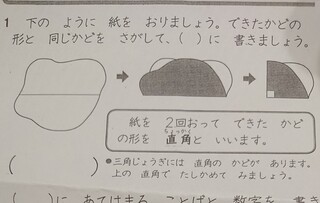 1 下の ように 紙を おりましょう。できたかどの
形と 同じかどを さがして、( )に 書きましょう。
紙を 2回おって できた かど
の形を 直角と いいます。
ちょっかく
( )
●三角じょうぎには 直角の かどが あります。
上の 直角で たしかめて みましょう。
( )に あてはまる ことばと 数字を 書き